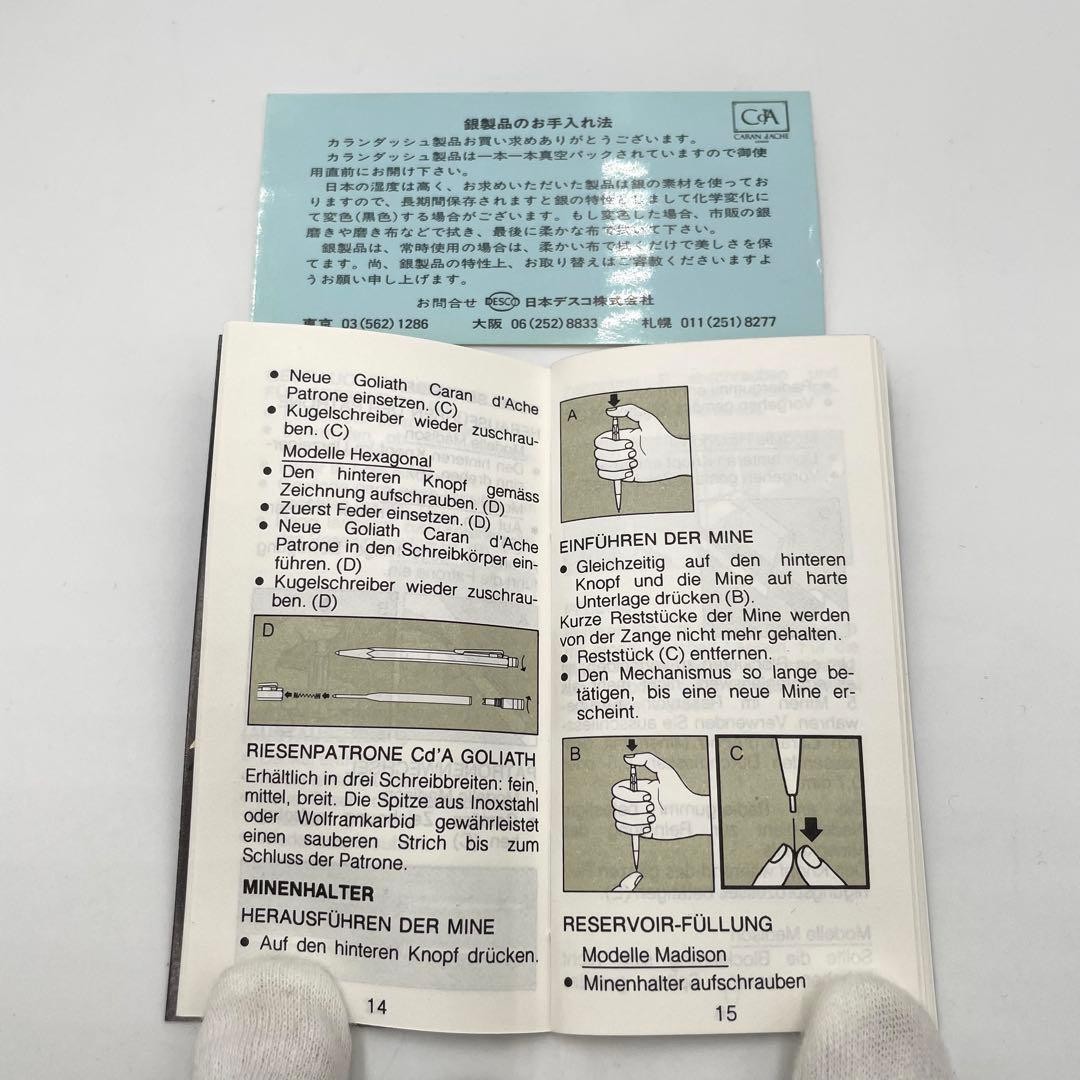 銀製品のお手入れ法
CdA
CARAN d'ACHE
カランダッシュ製品お買い求めありがとうございます。
カランダッシュ製品は一本一本真空パックされていますので御使
用直前にお開け下さい。
日本の湿度は高く、お求めいただいた製品は銀の素材を使ってお
りますので、長期間保存されますと銀の特性としまして化学変化に
て変色(黒色)する場合がございます。もし変色した場合、市販の銀
磨きや磨き布などで拭き、最後に柔かな布で拭いて下さい。
銀製品は、常時使用の場合は、柔かい布で拭くだけで美しさを保
てます。尚、銀製品の特性上、お取り替えはご容赦くださいますよ
うお願い申し上げます。
お問合せ DESCO 日本デスコ株式会社
東京 03(562)1286 大阪 06(252)8833 札幌 011(251)8277
• Neue Goliath Caran d'Ache
Patrone einsetzen. (C)
• Kugelschreiber wieder zuschrau-
ben. (C)
Modelle Hexagonal
• Den hinteren Knopf gemäss
Zeichnung aufschrauben. (D)
• Zuerst Feder einsetzen. (D)
• Neue Goliath Caran d'Ache
Patrone in den Schreibkörper ein-
führen. (D)
• Kugelschreiber wieder zuschrau-
ben. (D)
D
RIESENPATRONE Cd'A GOLIATH
Erhältlich in drei Schreibbreiten: fein,
mittel, breit. Die Spitze aus Inoxstahl
oder Wolframkarbid gewährleistet
einen sauberen Strich bis zum
Schluss der Patrone.
MINENHALTER
HERAUSFÜHREN DER MINE
• Auf den hinteren Knopf drücken.
14
A
EINFÜHREN DER MINE
• Gleichzeitig auf den hinteren
Knopf und die Mine auf harte
Unterlage drücken (B).
Kurze Reststücke der Mine werden
von der Zange nicht mehr gehalten.
• Reststück (C) entfernen.
• Den Mechanismus so lange be-
tätigen, bis eine neue Mine er-
scheint.
B
C
RESERVOIR-FÜLLUNG
Modelle Madison
• Minenhalter aufschrauben
15